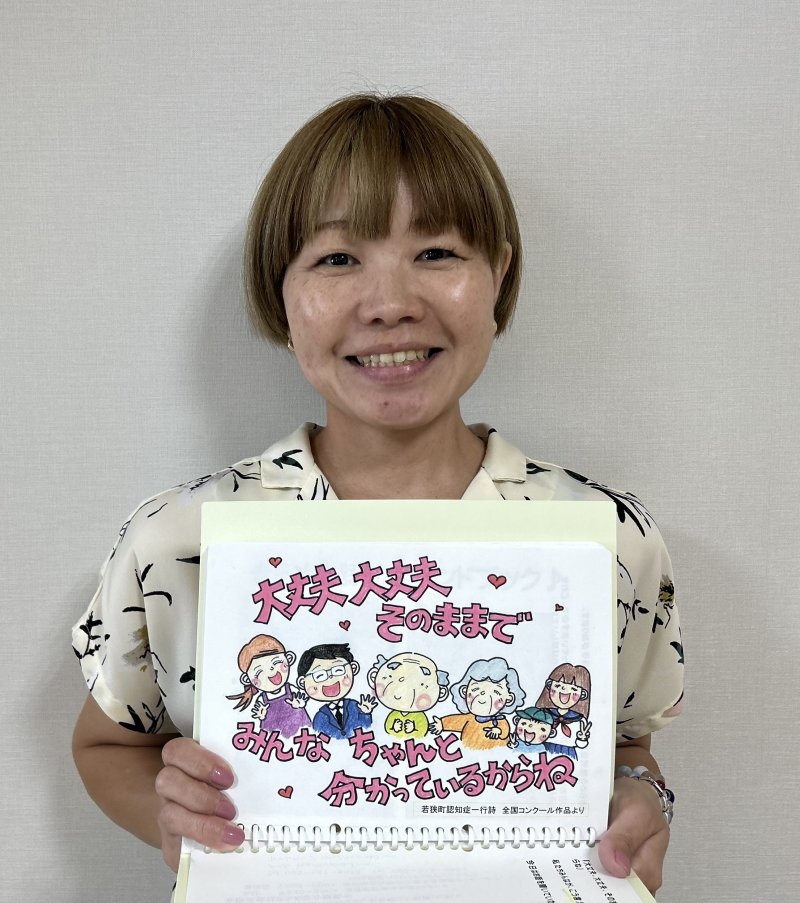 大丈夫 大丈夫
そのままで
みんな ちゃんと
分かっているからね
若狭町認知症一行詩 全国コンクール作品より